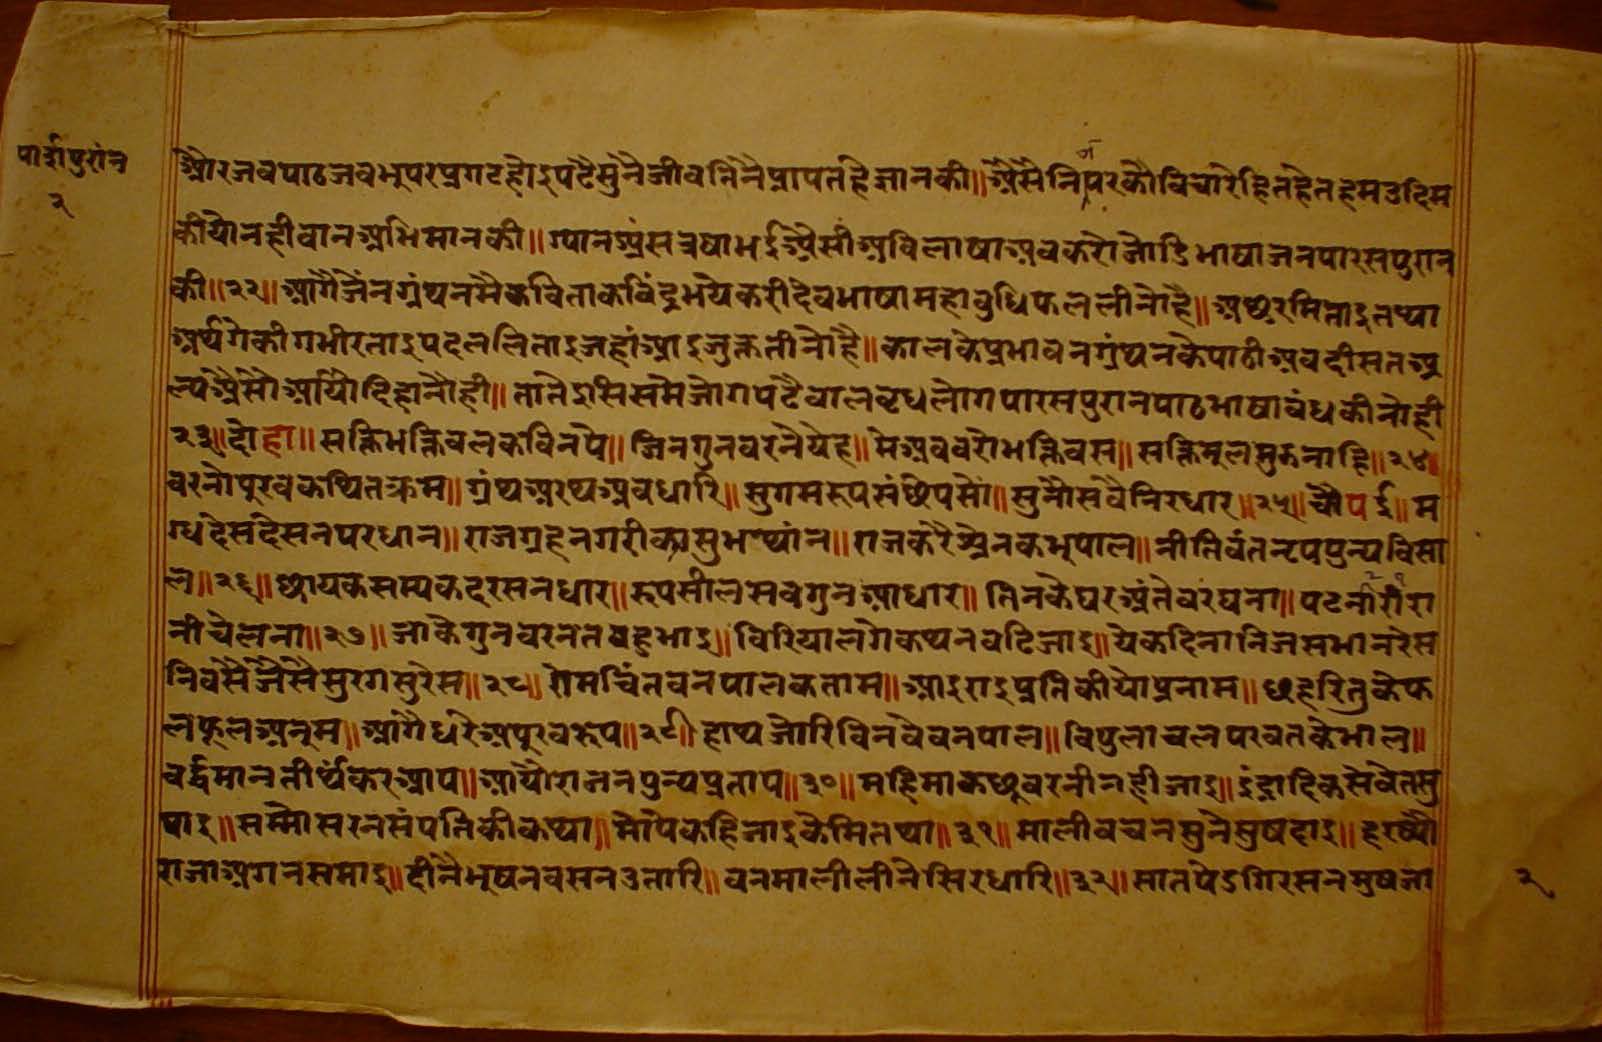 पार्श्वपुरांन
२
और जव पाठ जव भुपर प्रगट होइ पटै सुनै जीव तिनै प्रापत है ज्ञान की॥ अैसै निज परकौ विचारे हित हेत हम उदिम
कीयो नही वान अभिमान की॥ ग्यान अंस चषा भई अैसी अविलाषा अव करो जोडि भाषा जन पारसपुरान
की॥२२॥ आगै जैंन ग्रंथन मै कविता कविंद्र भये करी देवभाषा महा वुधि फल लीनो है॥ अछरमिताइ तथा
अर्थ की गभीरताइ पदललिताइ जहां आइ जुक्त तीनो है॥ काल के प्रभाव न ग्रंथन के पाठी अव दीसत अ
ल्प अैसो आयो दिहीनौ ही॥ ताते इसि समे जोग पटै वालवृध लोग पारसपुरान पाठ भाषावंध कीनो ही
२३॥ दोहा॥ सक्तिभक्तिवल कविन पै॥ जिनगुन वरनै येह॥ मे अव वरो भक्तिवस॥ सक्ति मुल मुत नाहि॥२४॥
वरनो पुरव कथित क्रम॥ ग्रंथ अरथ अवधारि॥ सुगम रूप संछिप सो॥ सुनौ सवै निरधार॥२५॥ चौपई॥ म
गध देस देसन परधान॥ राजग्रह नगरी का सुभ थांन॥ राज करै श्रेनक भुपाल॥ नीतिवंत नृप पुन्य विसा
ल॥२६॥ छायक सम्यक दरसन धार॥ रूप सील सव गुन आधार॥ तिनकै घर अंतेवर घना॥ पटनी रां रा
नी चेलना॥२७॥ जाके गुन वरनत वहु भाइ॥ विरिया लगे कथन वटि जाइ॥ येक दिना निज सभा नरेस
निवसै जैसै सुरग सुरेस॥२८॥ रोमचिंत वनपालक ताम॥ आइ राइ प्रति कीयो प्रनाम॥ छह रितु के फ
ल फूल अनुम॥ आगै धरे अपुरव रूप॥२९॥ हाथ जोरि विनवे वनपाल॥ विपुलाचल परवत के भाल॥
वर्द्धमान तीर्थंकर आप॥ आयौ राजन पुन्य प्रताप॥३०॥ महिमा कछू वरनी नही जाइ॥ इंद्रादिक सेवेत सु
पाइ॥ सम्मोसरन संपति की कथा॥ मोपे कहि जाइ केमि तथा॥३१॥ माली वचन सुनै सुषदाइ॥ हरष्यौ
राजा अगन समाइ॥ दीनै भुषन वसन उतारि॥ वनमाली लीनै सिर धारि॥३२॥ सात पेड गिर सनमुष जा
२